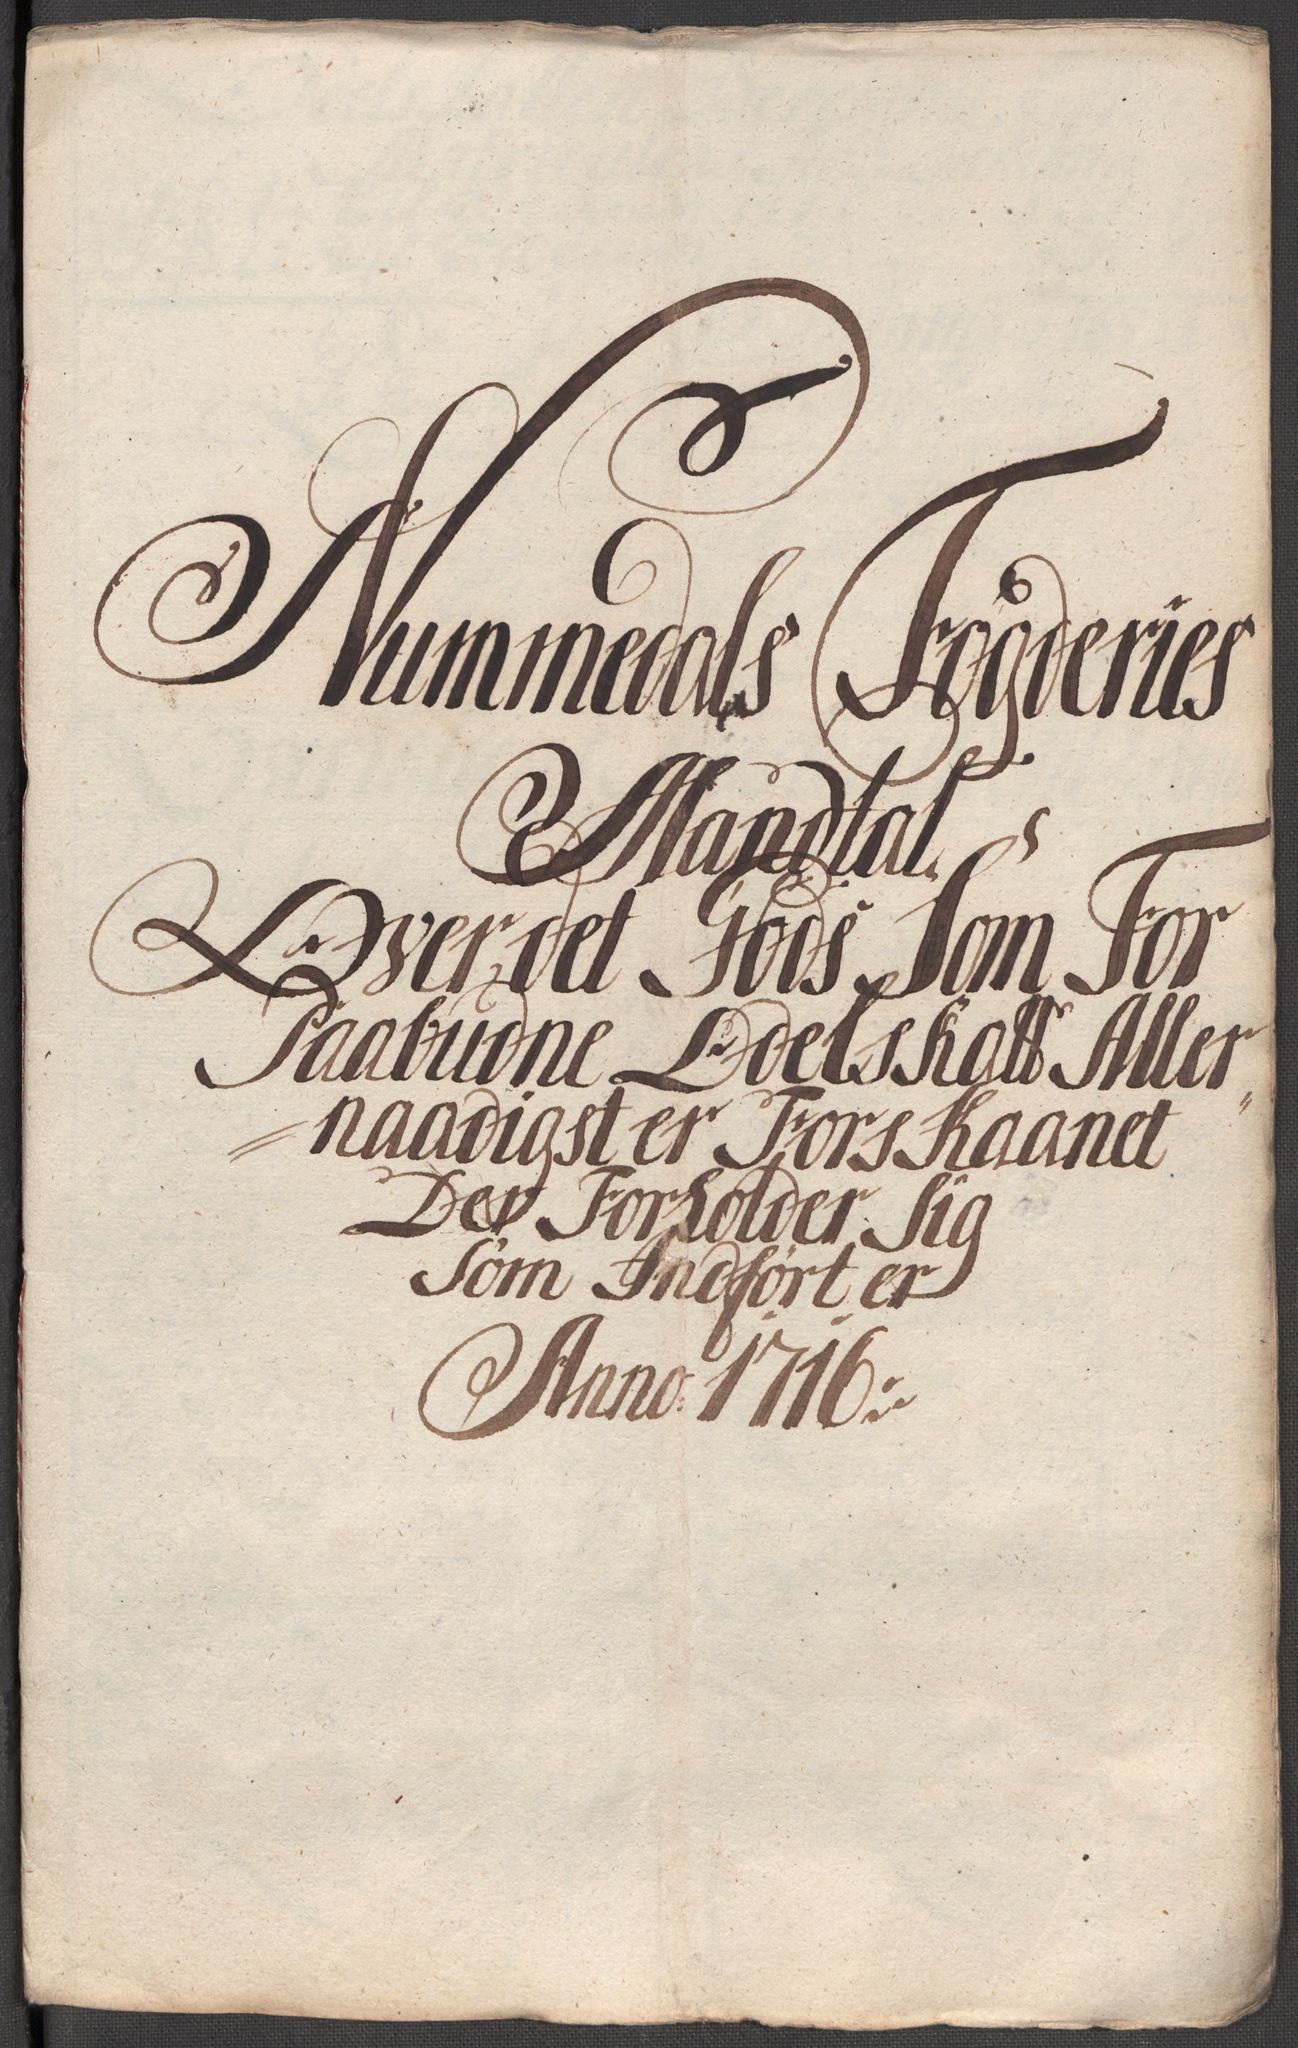 Nummedals Fogderies
Mandtal
Over det Gods Som For
Paabudne Odels Skatt Aller
naadigst er Forskaanet
Der Forholder sig
Som Indført er
Anno 1716